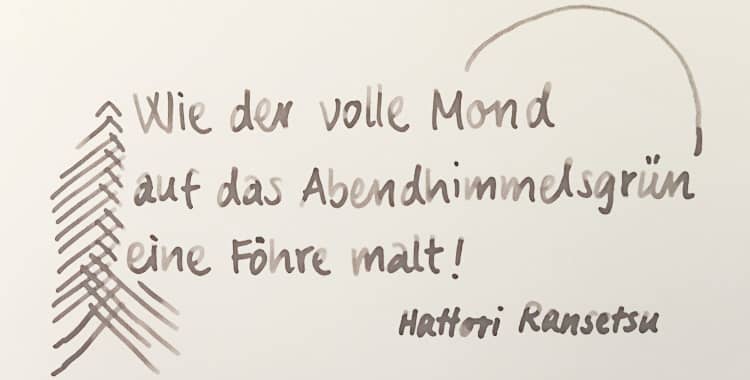 Wie der volle Mond
auf das Abendhimmelsgrün
eine Föhre malt!
Hattori Ransetsu